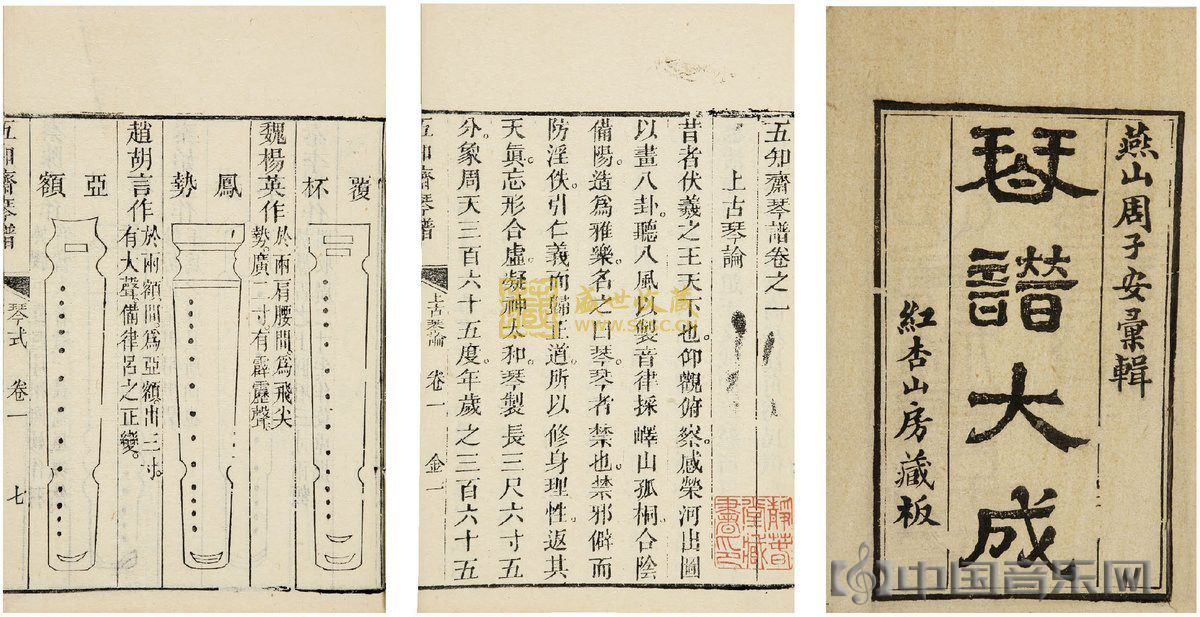 燕山周子安彙輯
琴譜大成
紅杏山房藏板
中国音乐网
五知齋琴譜卷之一
上古琴論
昔者伏羲之王天下也。仰觀俯察。感榮河出圖
以畫八卦。聽八風。以製音律。採嶧山孤桐。合陰
備陽。造爲雅樂。名之曰琴。琴者禁也。禁邪僻而
防淫佚。引仁義而歸正道。所以修身理性。返其
天眞。忘形合虛。凝神太和。琴製長三尺六寸五
分。象周天三百六十五度。年歲之三百六十五
五知齋琴譜 上古琴論 卷一 金一
盛世收藏
www.sssc.cn
覆杯
魏楊英作
於兩肩腰間爲飛尖
勢。廣二寸。有霹靂聲。
鳳勢
趙胡言作
於兩額間爲亞額出三寸。
有大聲備律呂之正變。
亞額
五知齋琴譜 琴式 卷一 七